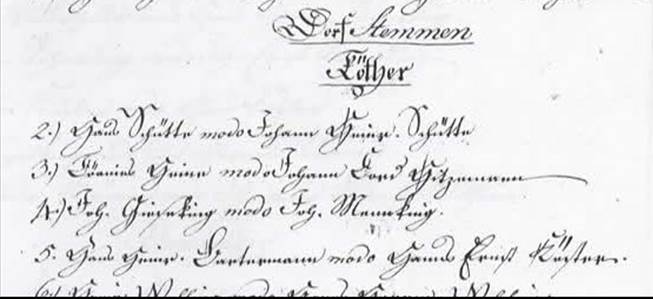 Dorf Stemmen
Köther
2.) Hans Schütte modo Johann Heinr. Schütte
3.) Tönnies Heine modo Johann Cord Hitzemann
4.) Joh. Gieseking modo Joh. Mennking.
5. Hans Heinr. Bartermann modo Hanns Ernst Köster.